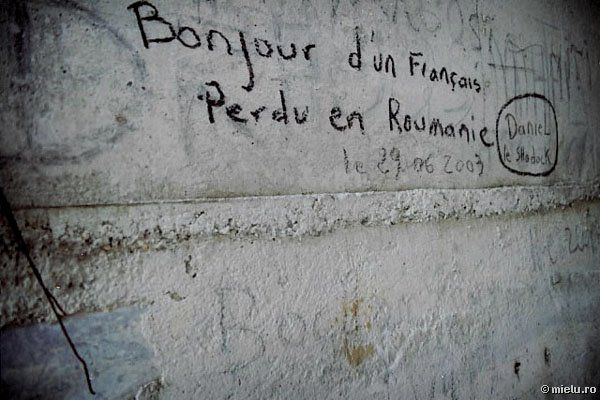 Bonjour d'un Français
Perdu en Roumanie
Daniel
le Shadock
le 29 06 2003
© mielu.ro